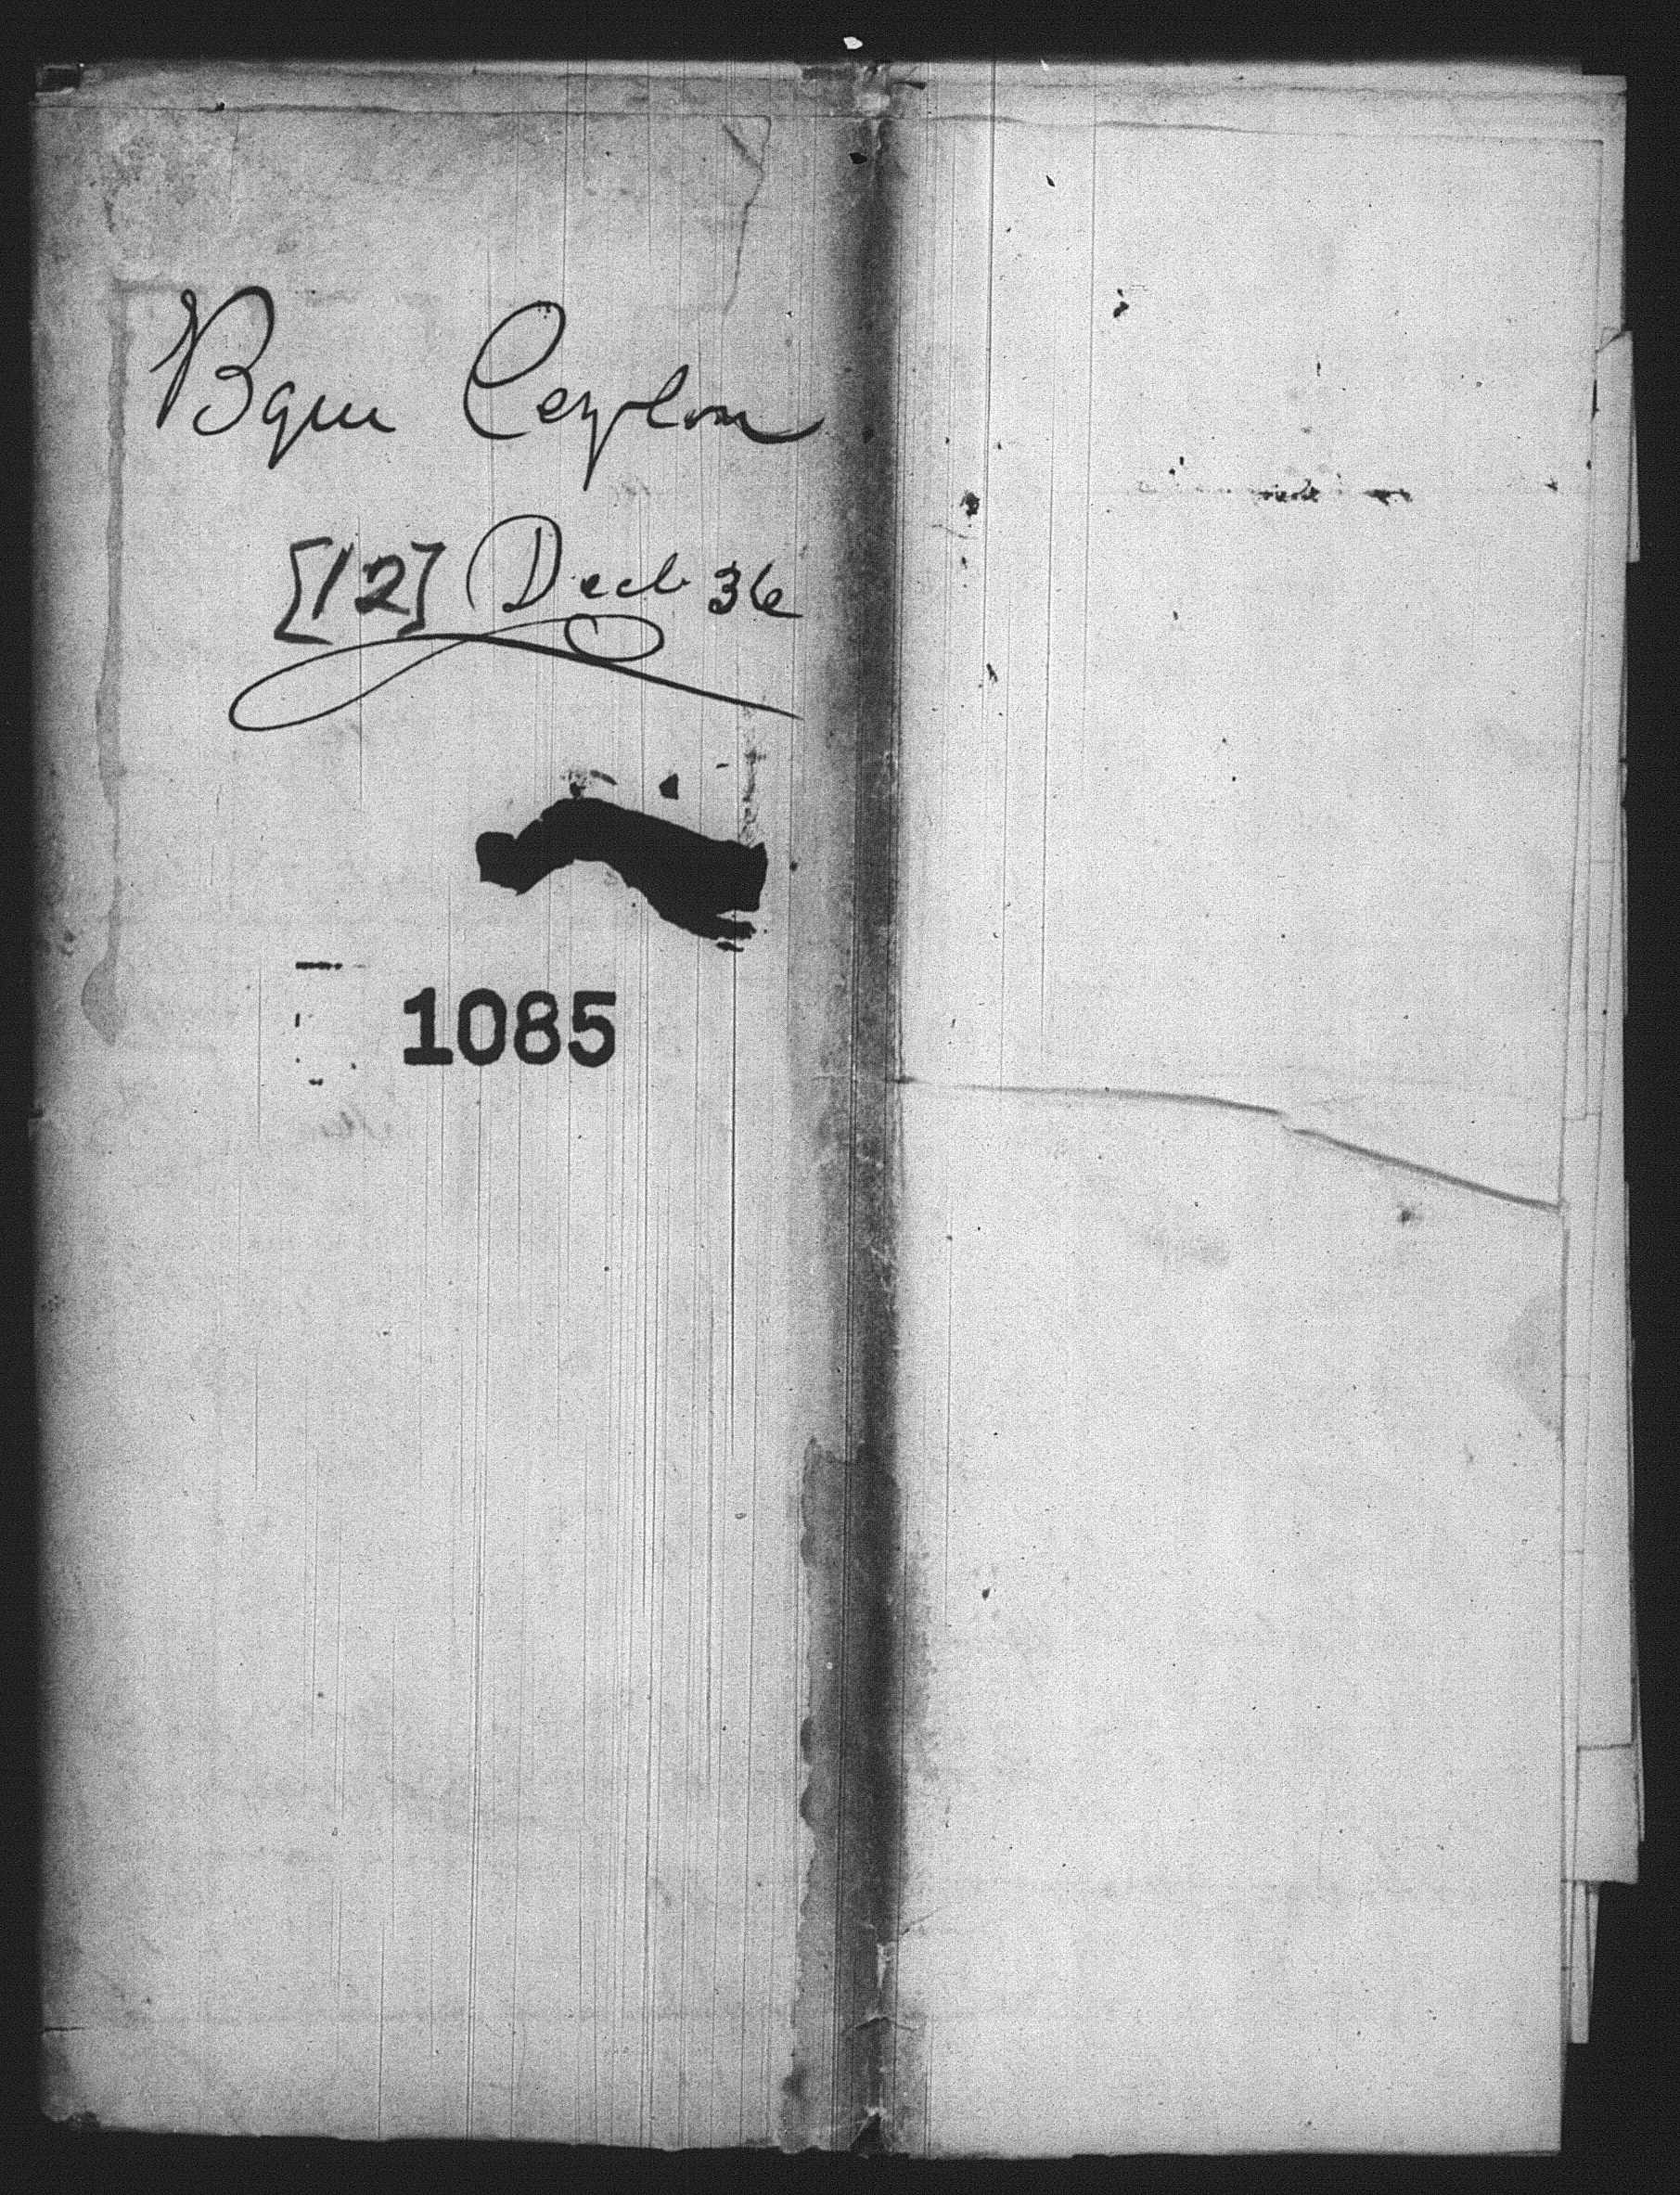 Bque Ceylon
[12] Decb 36
1085